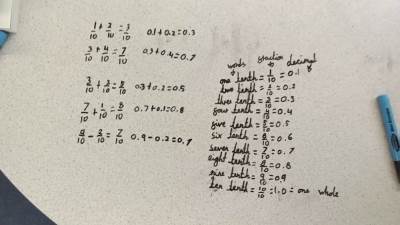 1/10 + 2/10 = 3/10 0.1 + 0.2 = 0.3
3/10 + 4/10 = 7/10 0.3 + 0.4 = 0.7
3/10 + 2/10 = 5/10 0.3 + 0.2 = 0.5
7/10 + 1/10 = 8/10 0.7 + 0.1 = 0.8
9/10 - 2/10 = 7/10 0.9 - 0.2 = 0.7
words fraction decimal
one tenth = 1/10 = 0.1
two tenth = 2/10 = 0.2
three tenth = 3/10 = 0.3
four tenth = 4/10 = 0.4
five tenth = 5/10 = 0.5
six tenth = 6/10 = 0.6
seven tenth = 7/10 = 0.7
eight tenth = 8/10 = 0.8
nine tenth = 9/10 = 0.9
ten tenth = 10/10 = 1.0 = one whole